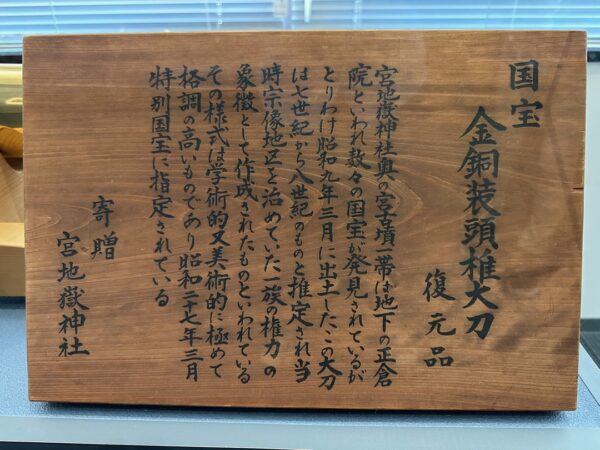 国宝
金銅装頭椎大刀
復元品
宮地嶽神社奥の宮古墳一帯は地下の正倉
院といわれ数々の国宝が発見されているが
とりわけ昭和九年三月に出土したこの大刀
は七世紀から八世紀のものと推定され当
時宗像地区を治めていた一族の権力の
象徴として作成されたものといわれている
その様式は学術的又美術的に極めて
格調の高いものであり昭和二七年三月
特別国宝に指定されている
寄贈
宮地嶽神社